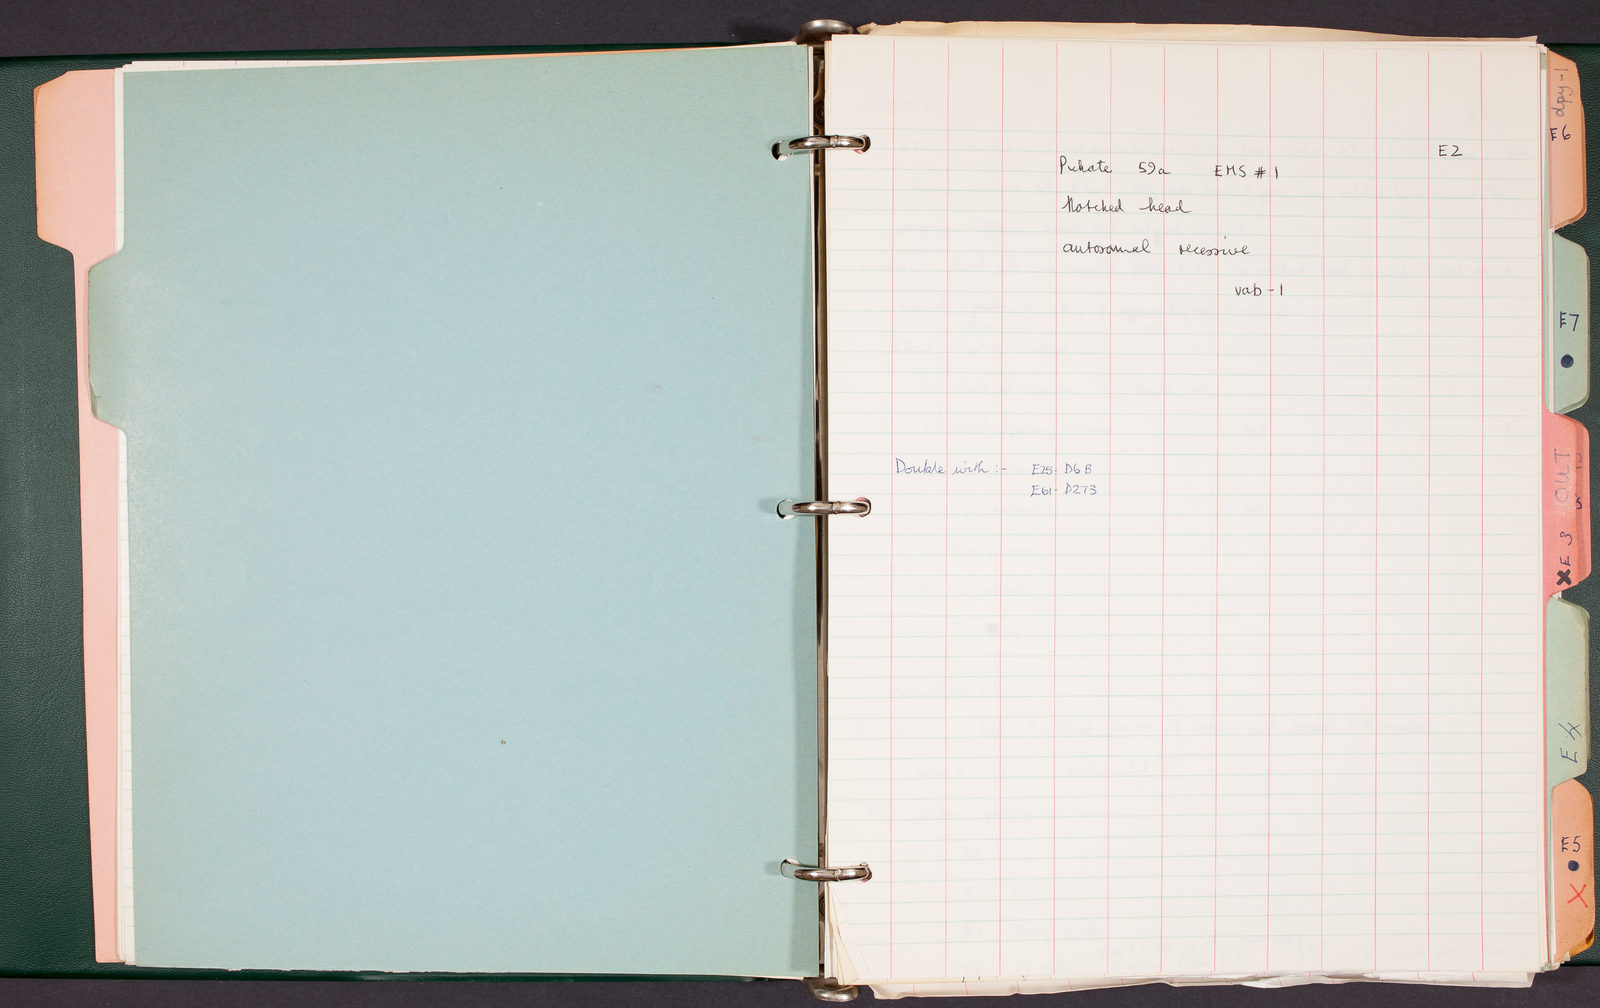 E2
Pickate 59a EMS # 1
Notched head
autosomal recessive
vab-1
Double with :- E25- D6B
E61- D273
dpy-1
E6
E7
OUT
XE 3
E4
E5
X